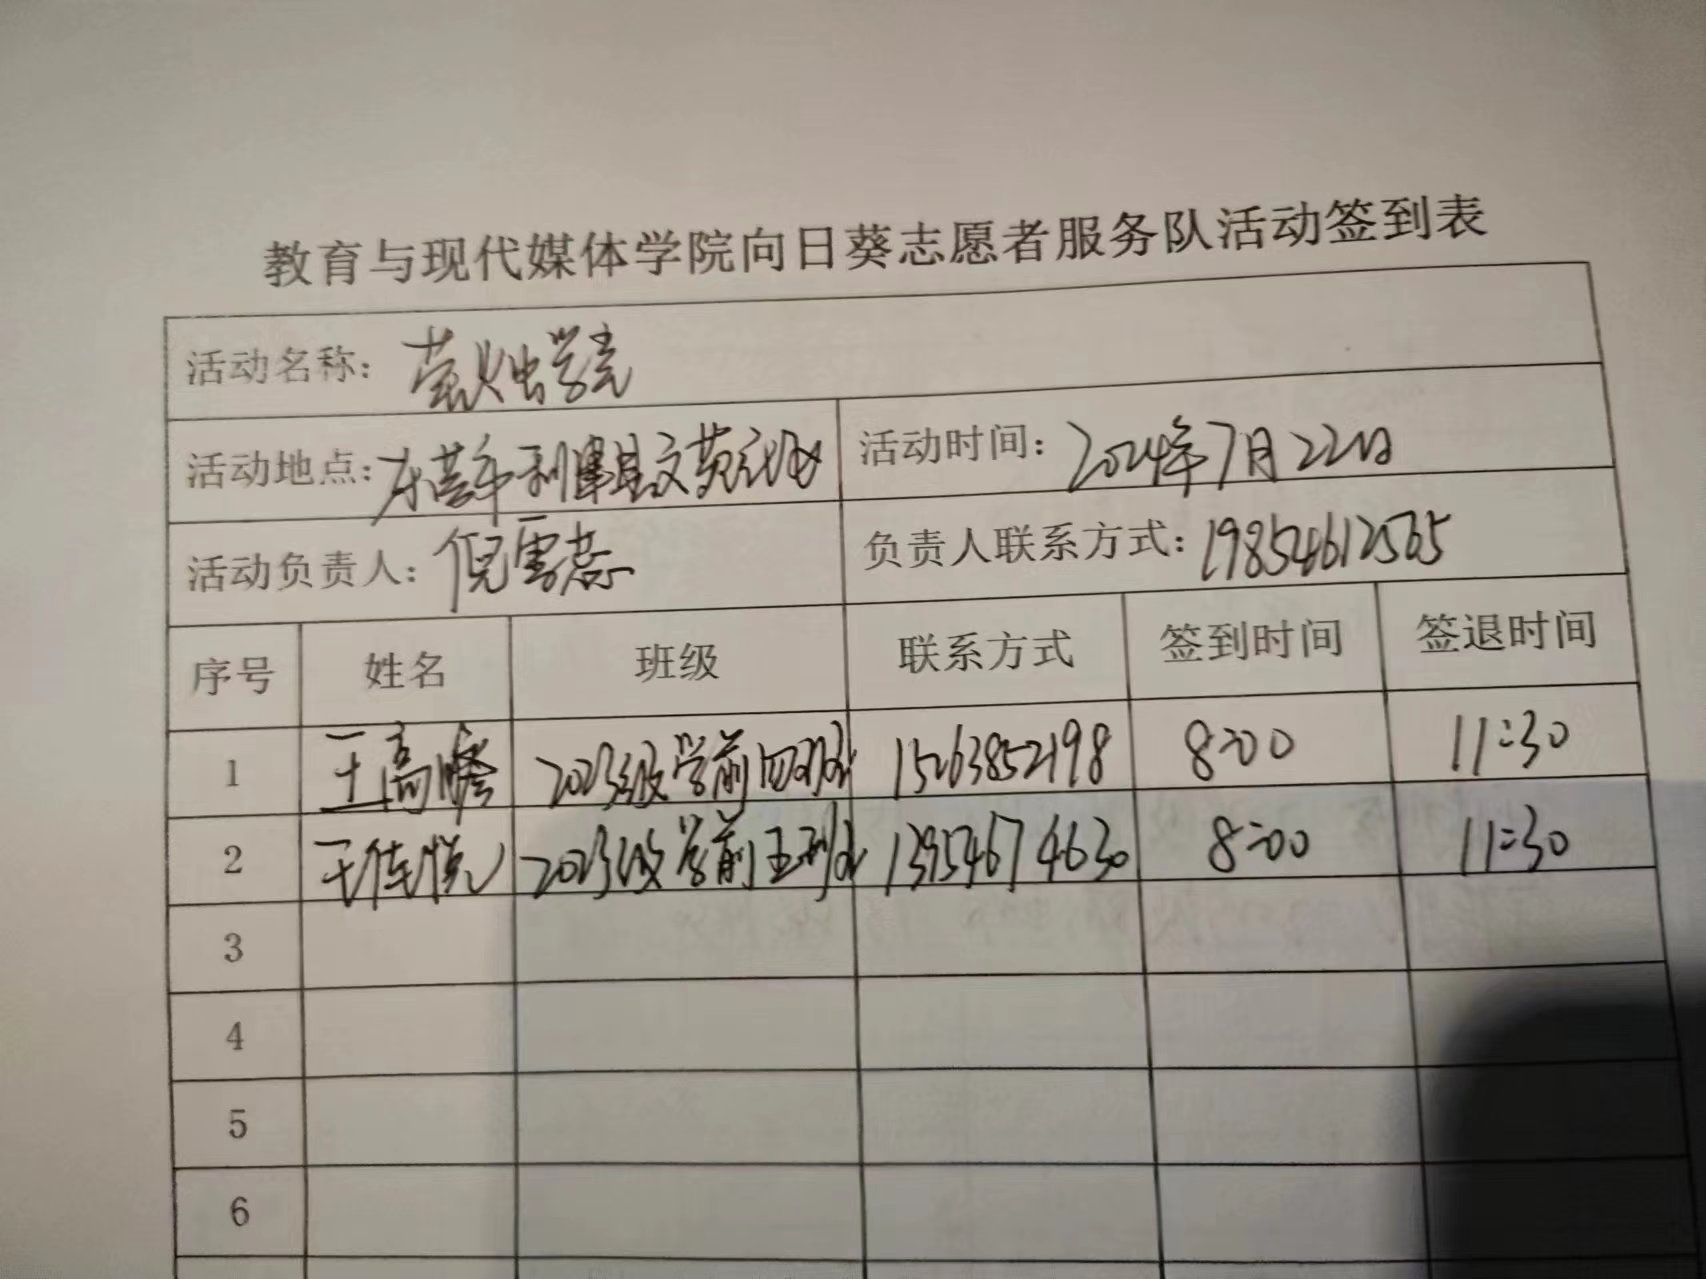 教育与现代媒体学院向日葵志愿者服务队活动签到表
活动名称: 萤火虫学堂
活动地点: 东营市利津县文苑社区 活动时间: 2024年7月22日
活动负责人: 倪雪蕊 负责人联系方式: 19854612565
序号 姓名 班级 联系方式 签到时间 签退时间
1 王高 2023级学前四班 15263852198 8:00 11:30
2 王佳悦 2023级学前五班 13954674630 8:00 11:30
3
4
5
6